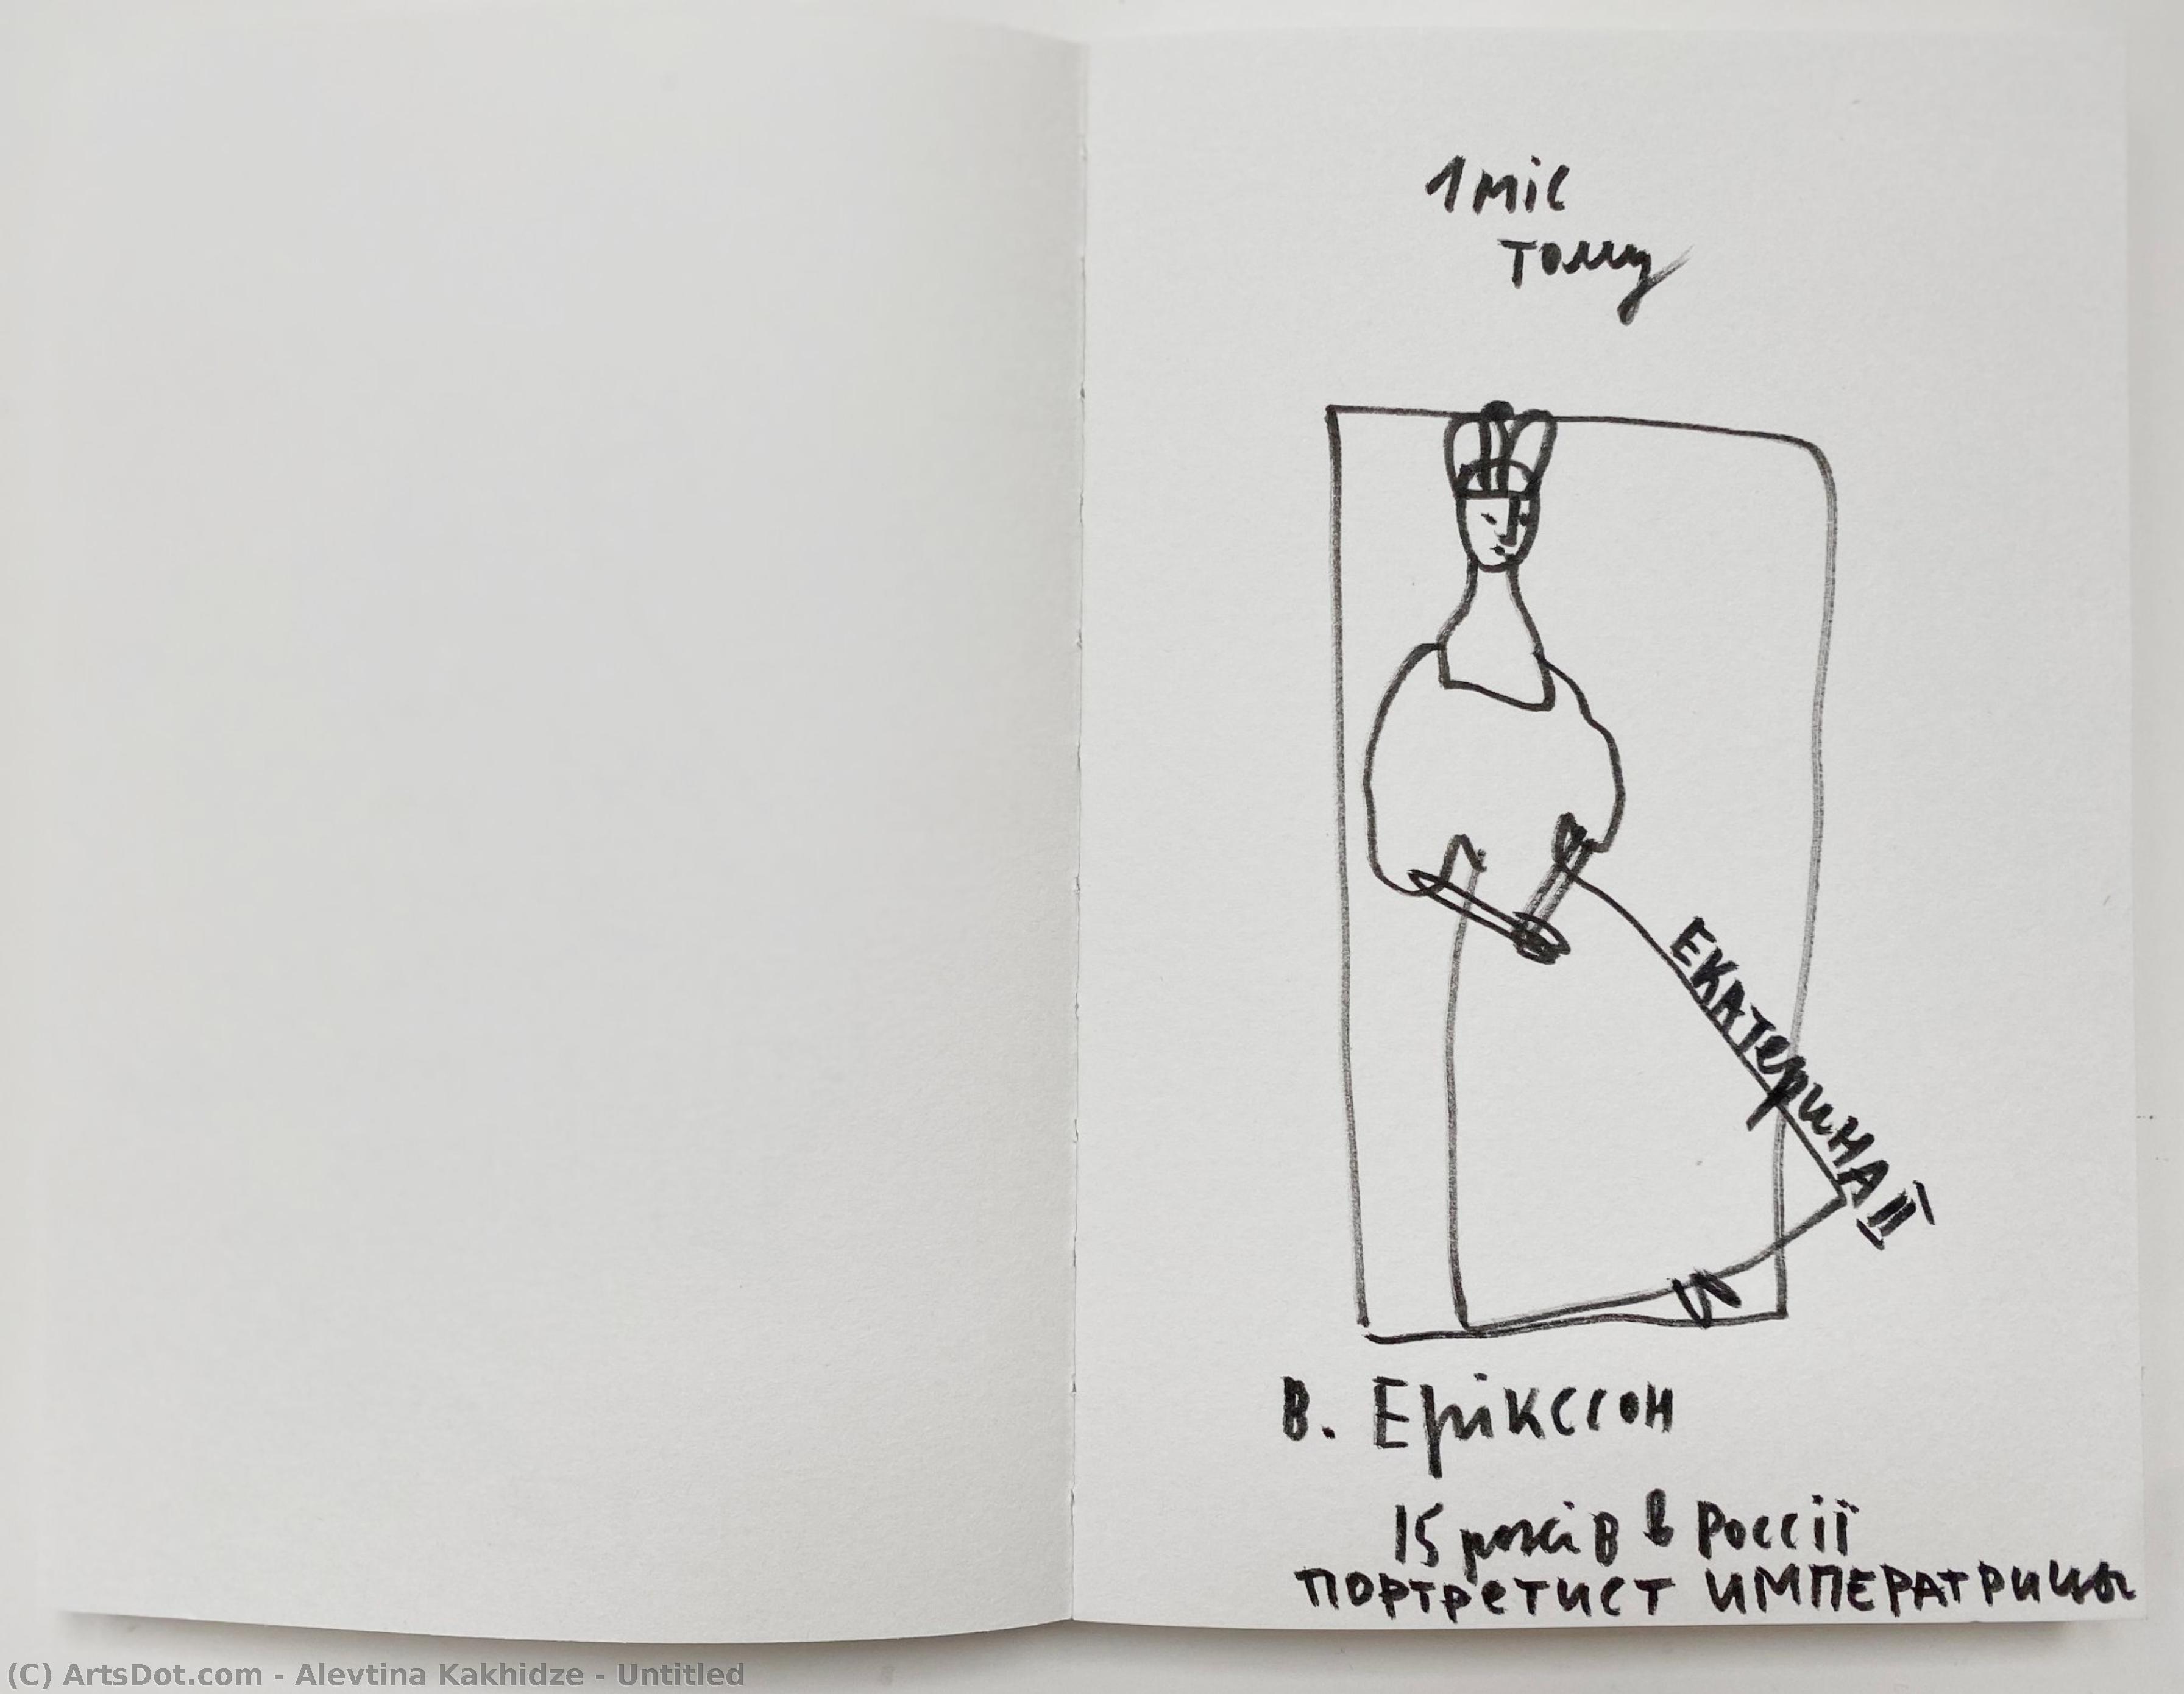 1 міс
тому
ЕКАТеринА II
В. Ерікссон
15 років в Россії
ПОРТРЕТИСТ ИМПЕРАТРИЦЫ
(C) ArtsDot.com - Alevtina Kakhidze - Untitled